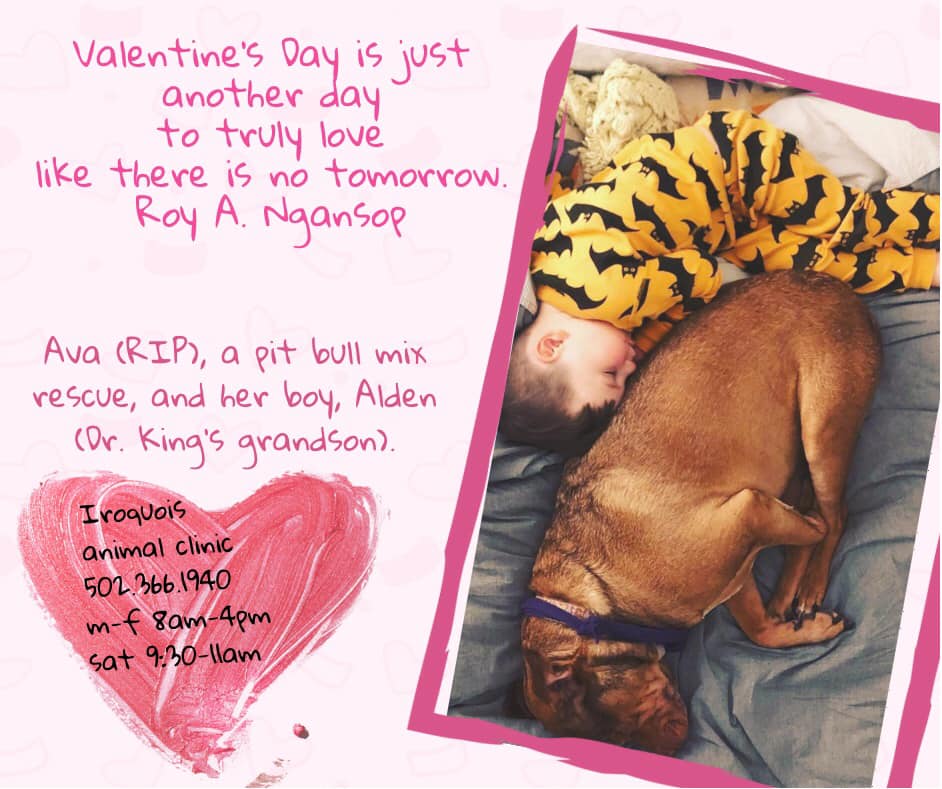 Valentine's Day is just
another day
to truly love
like there is no tomorrow.
Roy A. Ngansop
Ava (RIP), a pit bull mix
rescue, and her boy, Alden
(Dr. King's grandson).
Iroquois
animal clinic
502.366.1940
m-f 8am-4pm
sat 9:30-11am